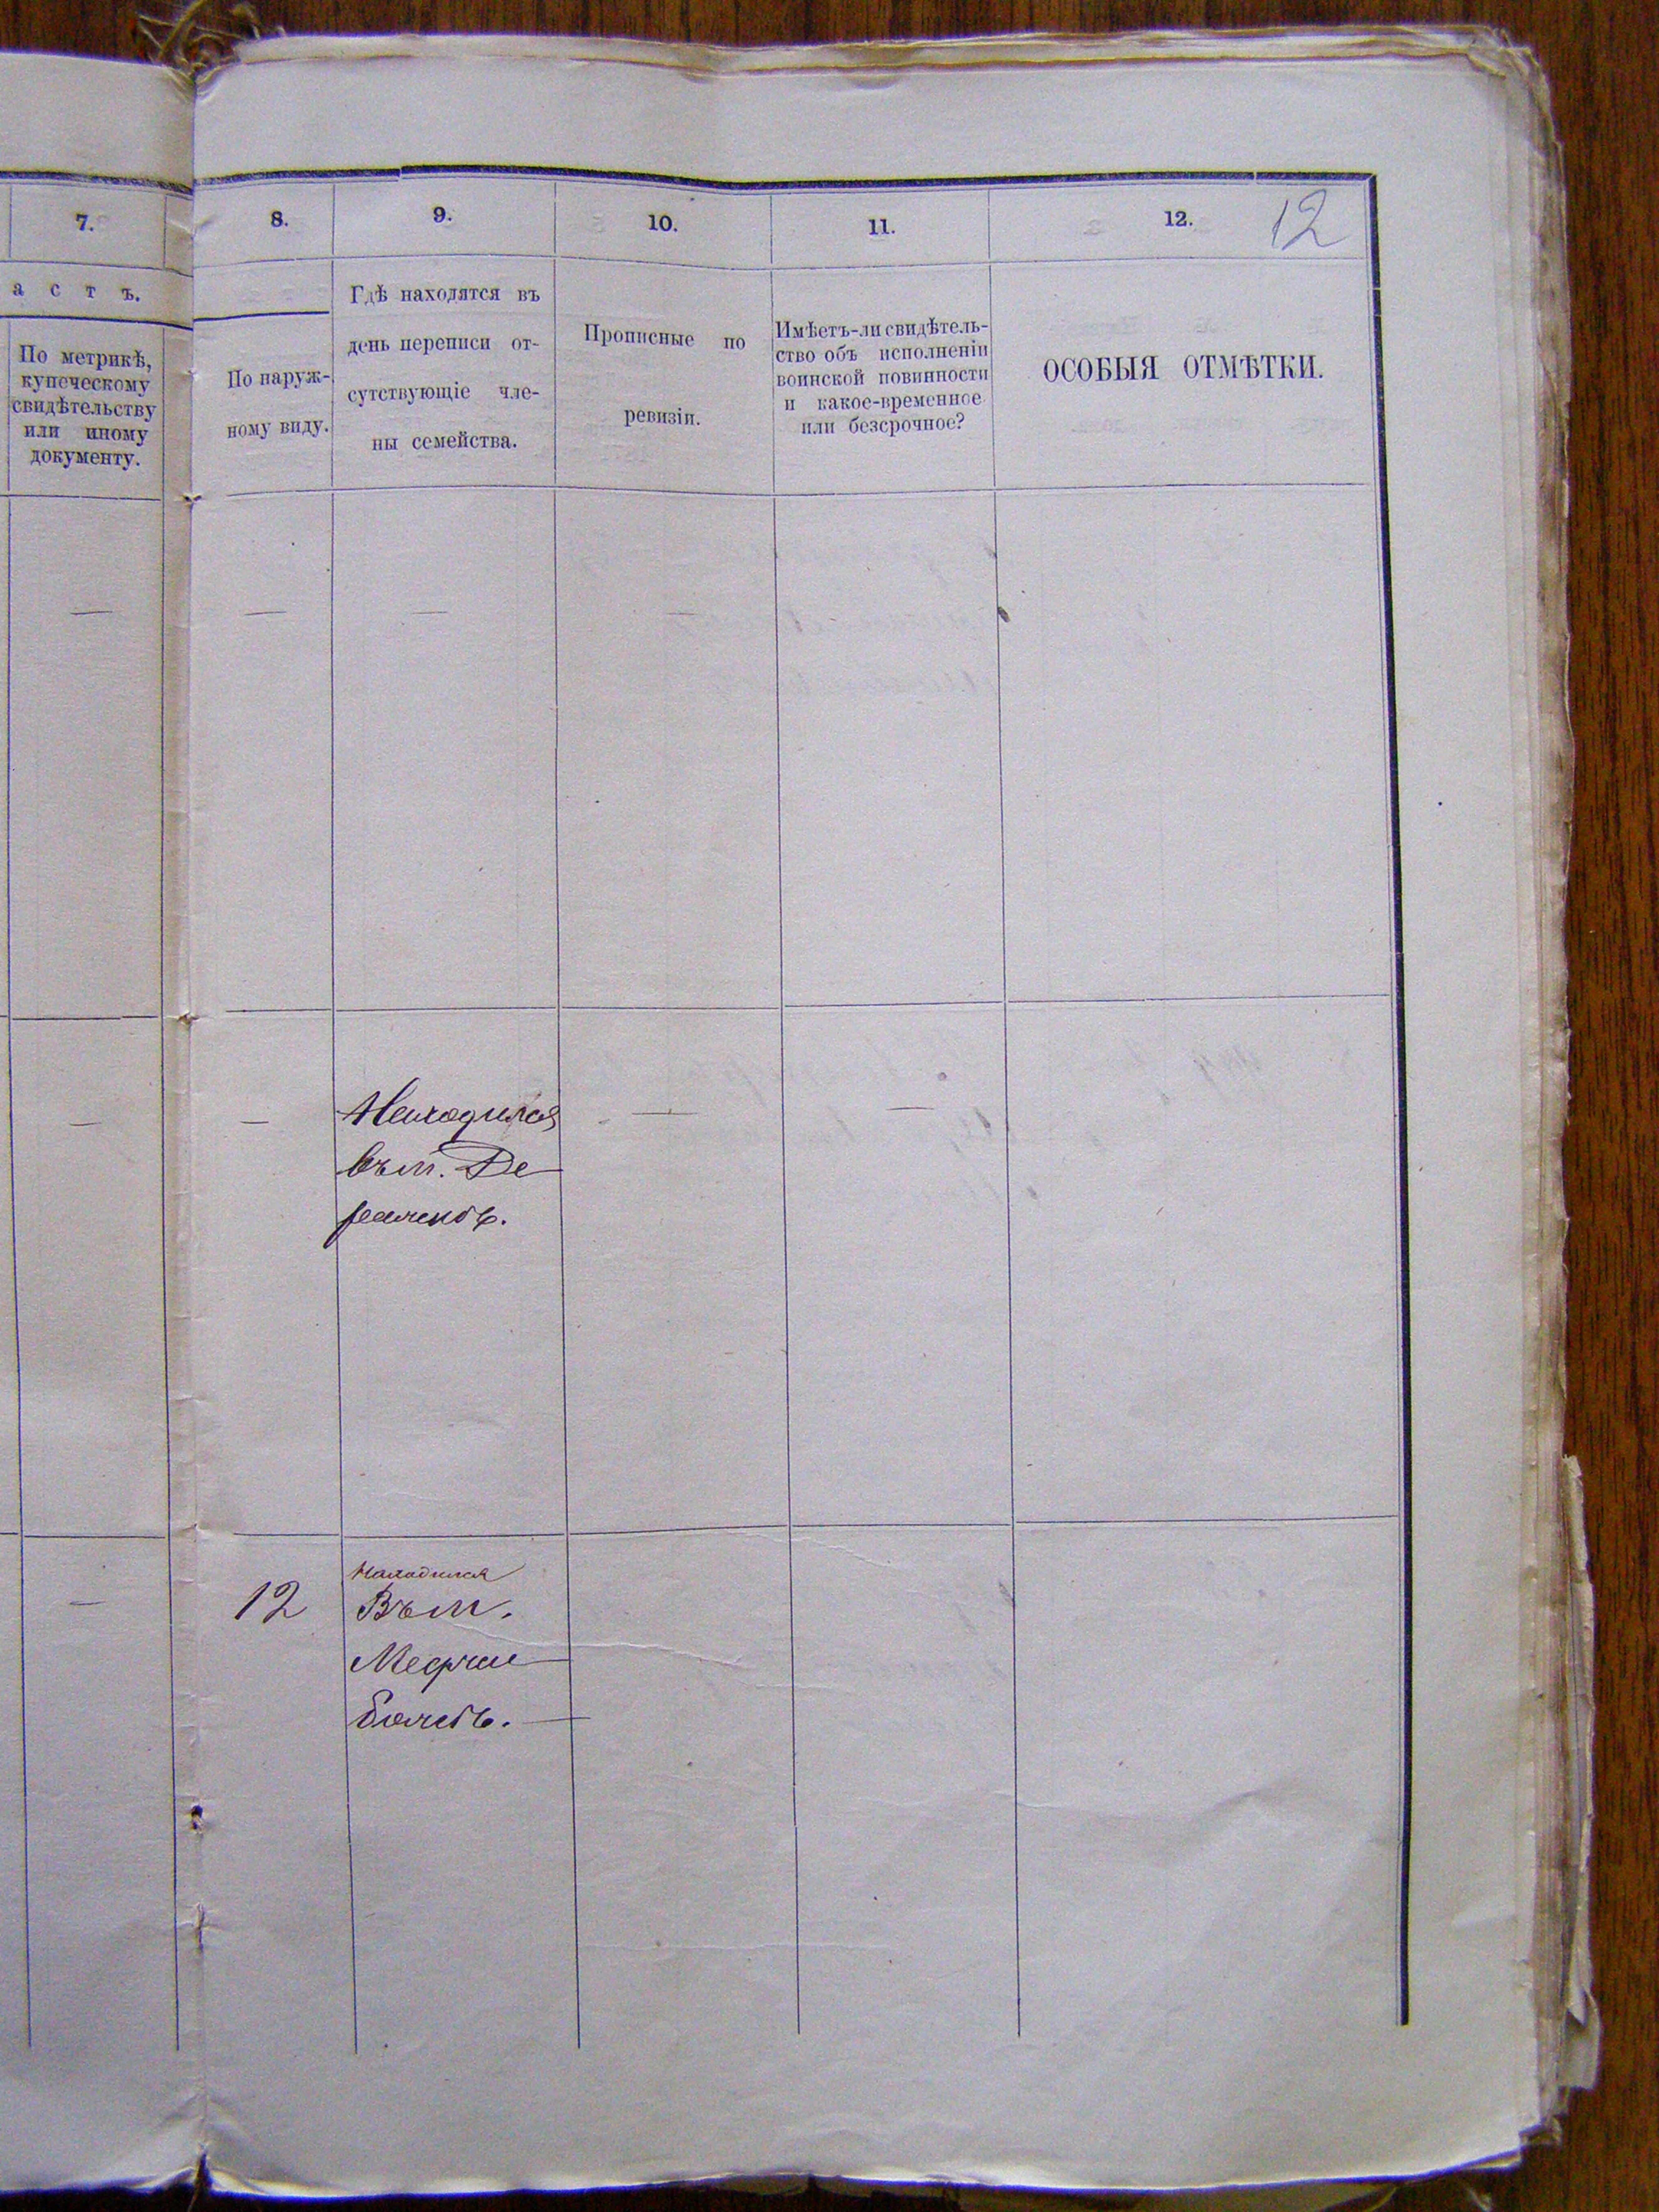 7.
8.
9.
10.
11.
12.
12
а с т ъ.
По метрикѣ,
купеческому
свидѣтельству
или иному
документу.
По наруж-
ному виду.
Гдѣ находятся въ
день переписи от-
сутствующіе чле-
ны семейства.
Прописные по
ревизіи.
Имѣетъ-ли свидѣтель-
ство объ исполненіи
воинской повинности
и какое-временное
или безсрочное?
ОСОБЫЯ ОТМѢТКИ.
—
—
—
—
—
—
Находился
въ м. Де
ражнѣ.
—
—
—
12
Находился
Въ м.
Меджи
божѣ.